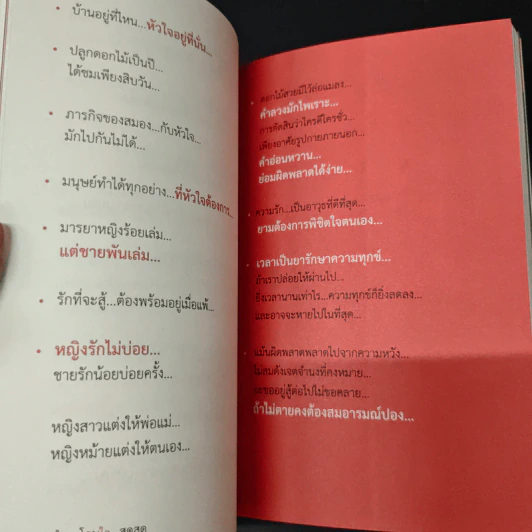 • บ้านอยู่ที่ไหน...หัวใจอยู่ที่นั่น...
• ปลูกดอกไม้เป็นปี...
ได้ชมเพียงสิบวัน...
• ภารกิจของสมอง...กับหัวใจ...
มักไปกันไม่ได้...
• มนุษย์ทำได้ทุกอย่าง...ที่หัวใจต้องการ...
• มารยาหญิงร้อยเล่ม...
แต่ชายพันเล่ม...
• รักที่จะสู้...ต้องพร้อมอยู่เมื่อแพ้...
• หญิงรักไม่บ่อย...
ชายรักน้อยบ่อยครั้ง...
หญิงสาวแต่งให้พ่อแม่...
หญิงหม้ายแต่งให้ตนเอง...
• ดอกไม้สวยมีไว้ล่อแมลง...
คำลวงมักไพเราะ...
การตัดสินว่าใครดีใครชั่ว...
เพียงอาศัยรูปกายภายนอก...
คำอ่อนหวาน...
ย่อมผิดพลาดได้ง่าย...
• ความรัก...เป็นอาวุธที่ดีที่สุด...
ยามต้องการพิชิตใจคนเอง...
• เวลาเป็นยารักษาความทุกข์...
ถ้าเราปล่อยให้ผ่านไป...
ยิ่งเวลานานเท่าไร...ความทุกข์ก็ยิ่งลดลง...
และอาจจะหายไปในที่สุด...
• แม้นผิดพลาดพลาดไปจากความหวัง...
ไม่สมดั่งเจตจำนงที่คงหมาย...
จะขออยู่สู้ต่อไปไม่ขอคลาย...
ถ้าไม่ตายคงต้องสมอารมณ์ปอง...